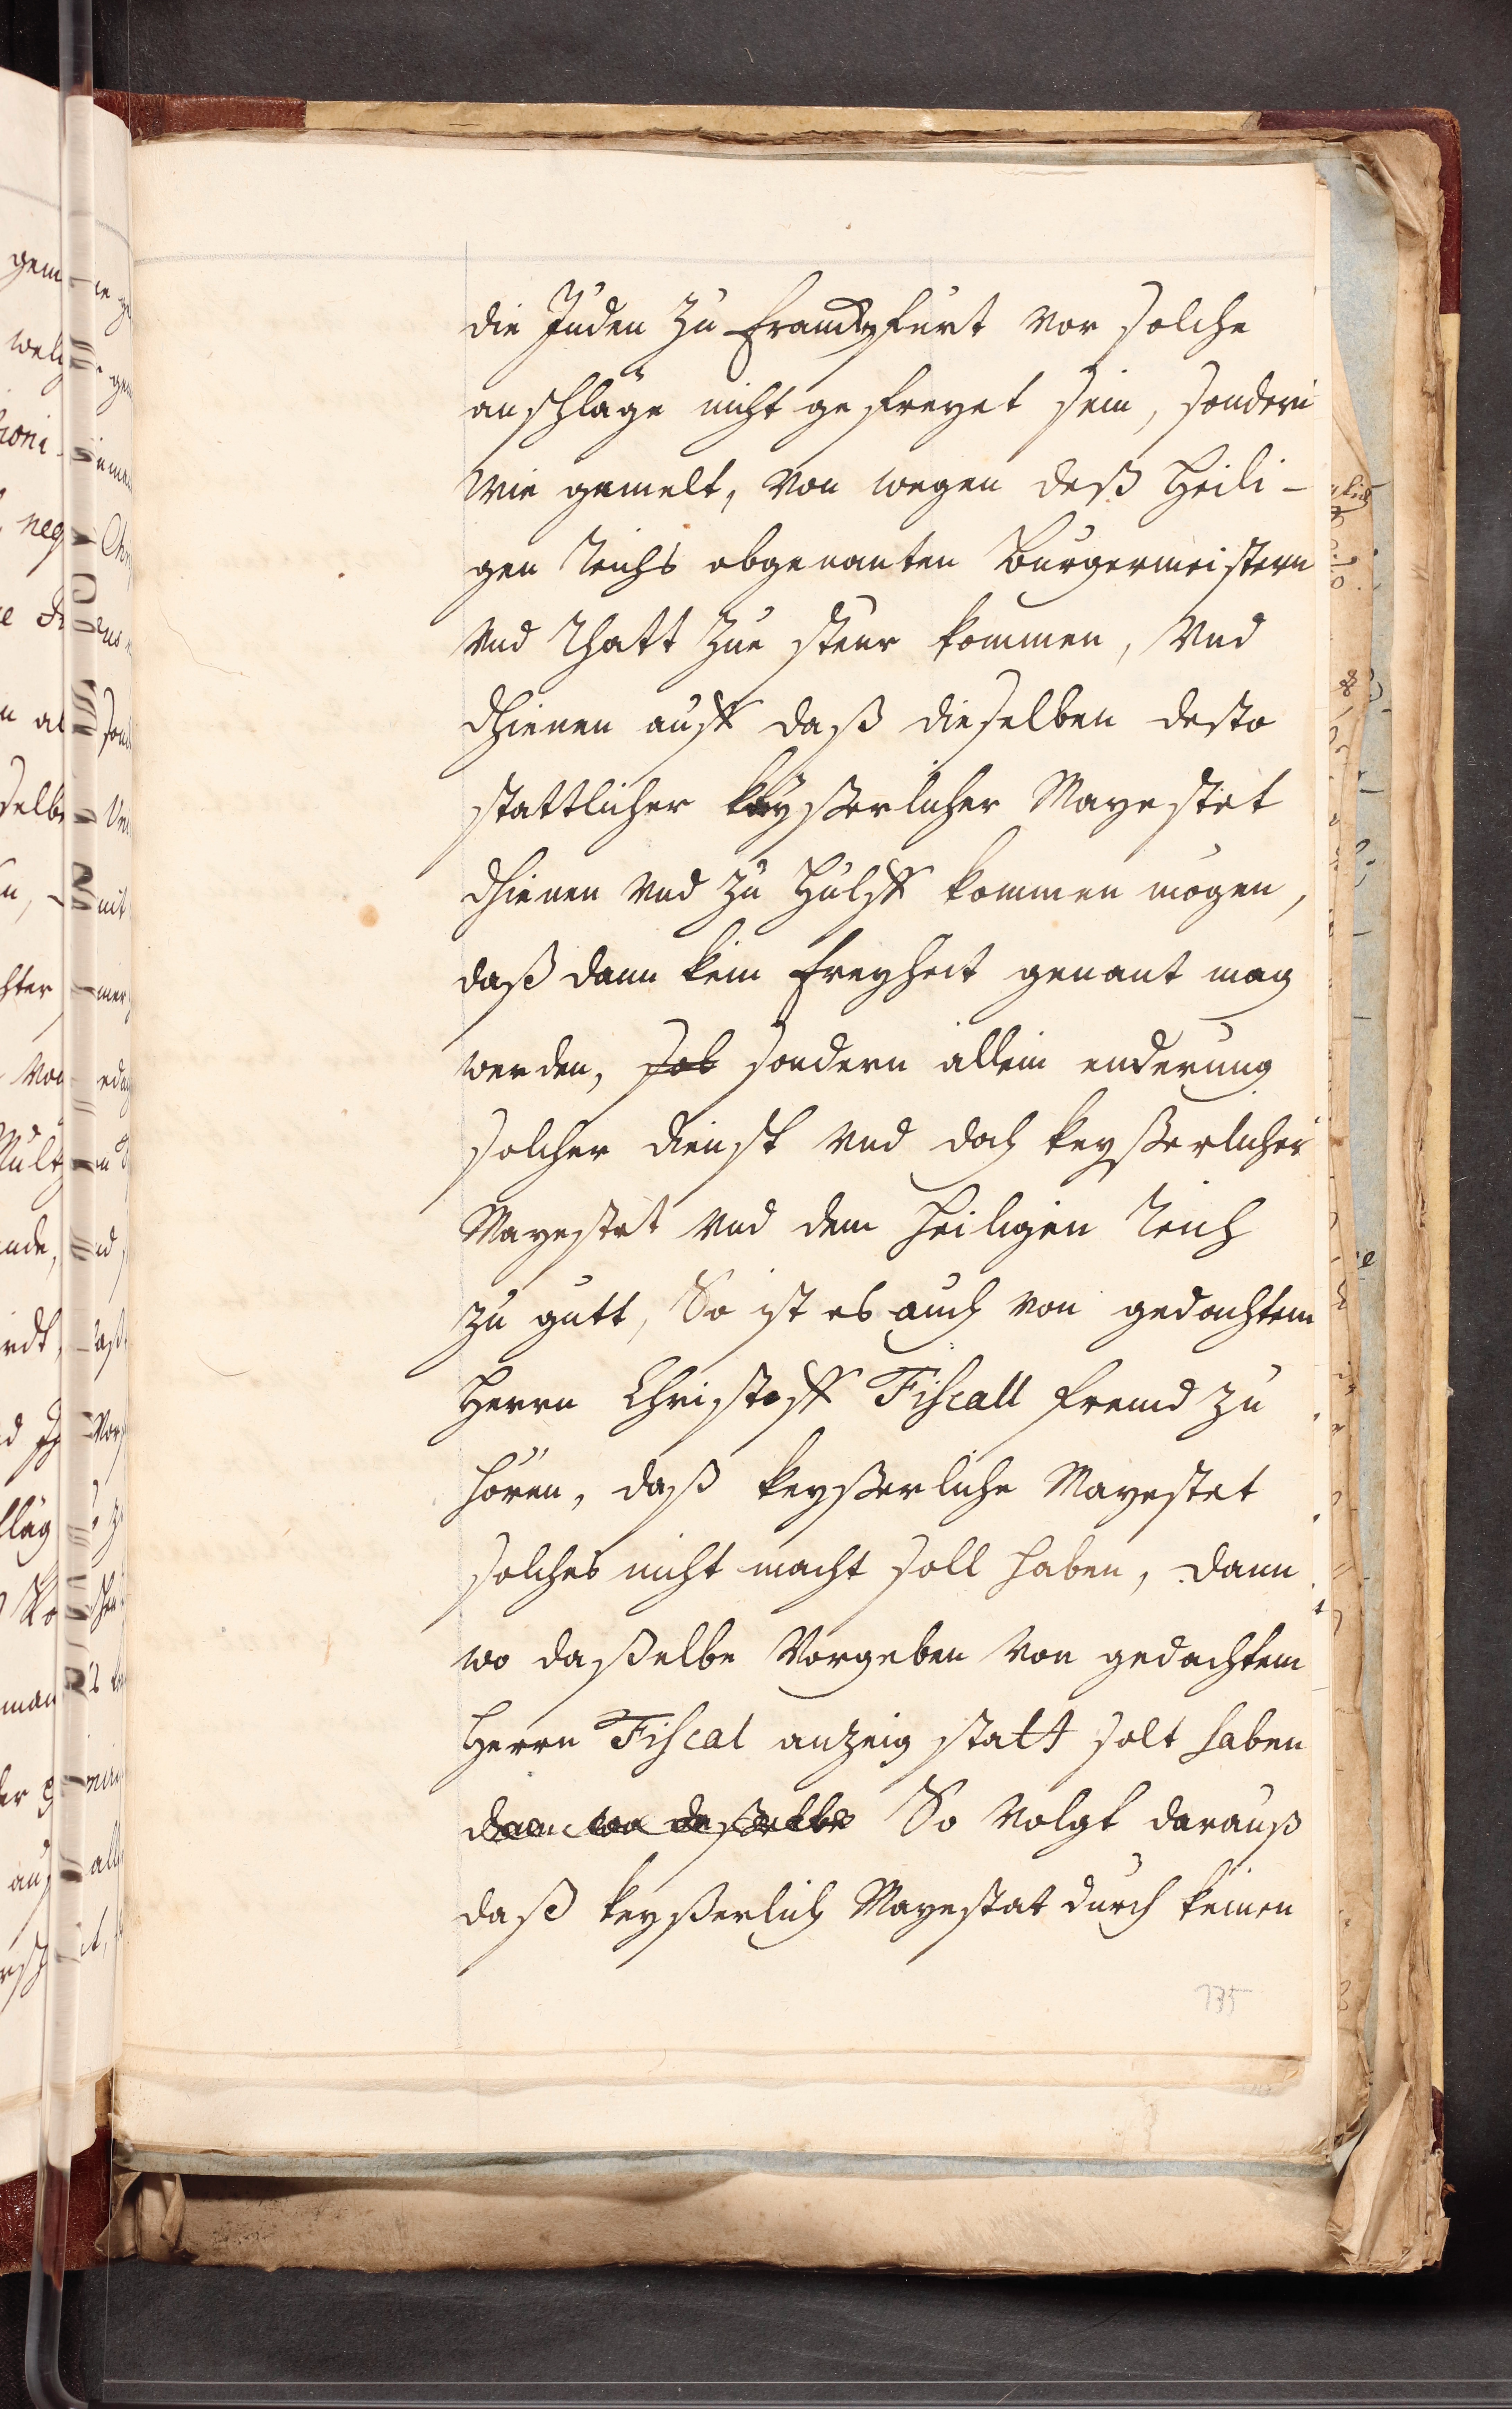 die Juden zu Franckfurt vor solche
anschläge nicht gefreyet sein, sondern
wie gemelt, von wegen deß Heili-
gen Reichs obgenanten Burgermeistern
vnd Rhatt zue steur kommen, vnd
dhienen auff daß dieselben desto
stattlicher keyßerlicher Mayestet
dhienen vnd zu Hülff kommen mögen,
daß dann kein Freyheit genant mag
werden, sol sondern allein enderung
solcher dienst vnd doch keyßerlicher
Mayestet vnd dem heiligen Reich
zu gutt, So ist es auch von gedachtem
Herrn Christoff Fiscall frembd zu
hören, daß keyßerliche Mayestet
solches nicht macht soll haben, dann
wo daßelbe Vorgeben von gedachtem
Herrn Fiscal anzeig statt solt haben
dann wo daßelbe So volgt darauß
daß keyßerlich Mayestat durch keinen
135